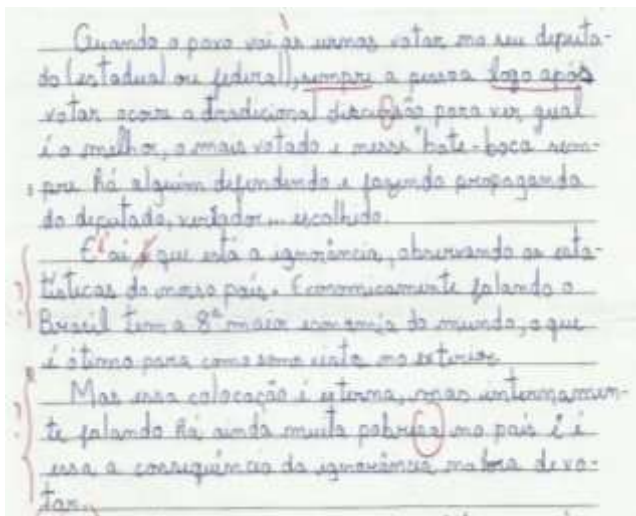 Quando o povo vai às urnas votar no seu deputa-
do (estadual ou federal), sempre a pessoa logo após
votar ocorre a tradicional discursão para ver qual
é o melhor, o mais votado e nesse "bate-boca" sem-
pre há alguém defendendo e fazendo propaganda
do deputado, vereador... escolhido.
E ai é que está a ignorância, observando as esta-
tísticas do nosso país. Economicamente falando o
Brasil tem a 8ª maior economia do mundo, o que
é ótimo para como somos no exterior
Mas essa colocação é externa, mas internamen-
te falando há ainda muita pobresa no país e é
essa a consequência da ignorância na hora de vo-
tar.